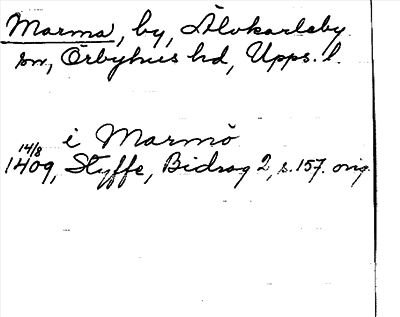 Marma, by, Älvkarleby
sn, Örbyhus hd, Upps. l.
i Marmö
14/8
1409, Styffe, Bidrag 2, s. 157. orig.